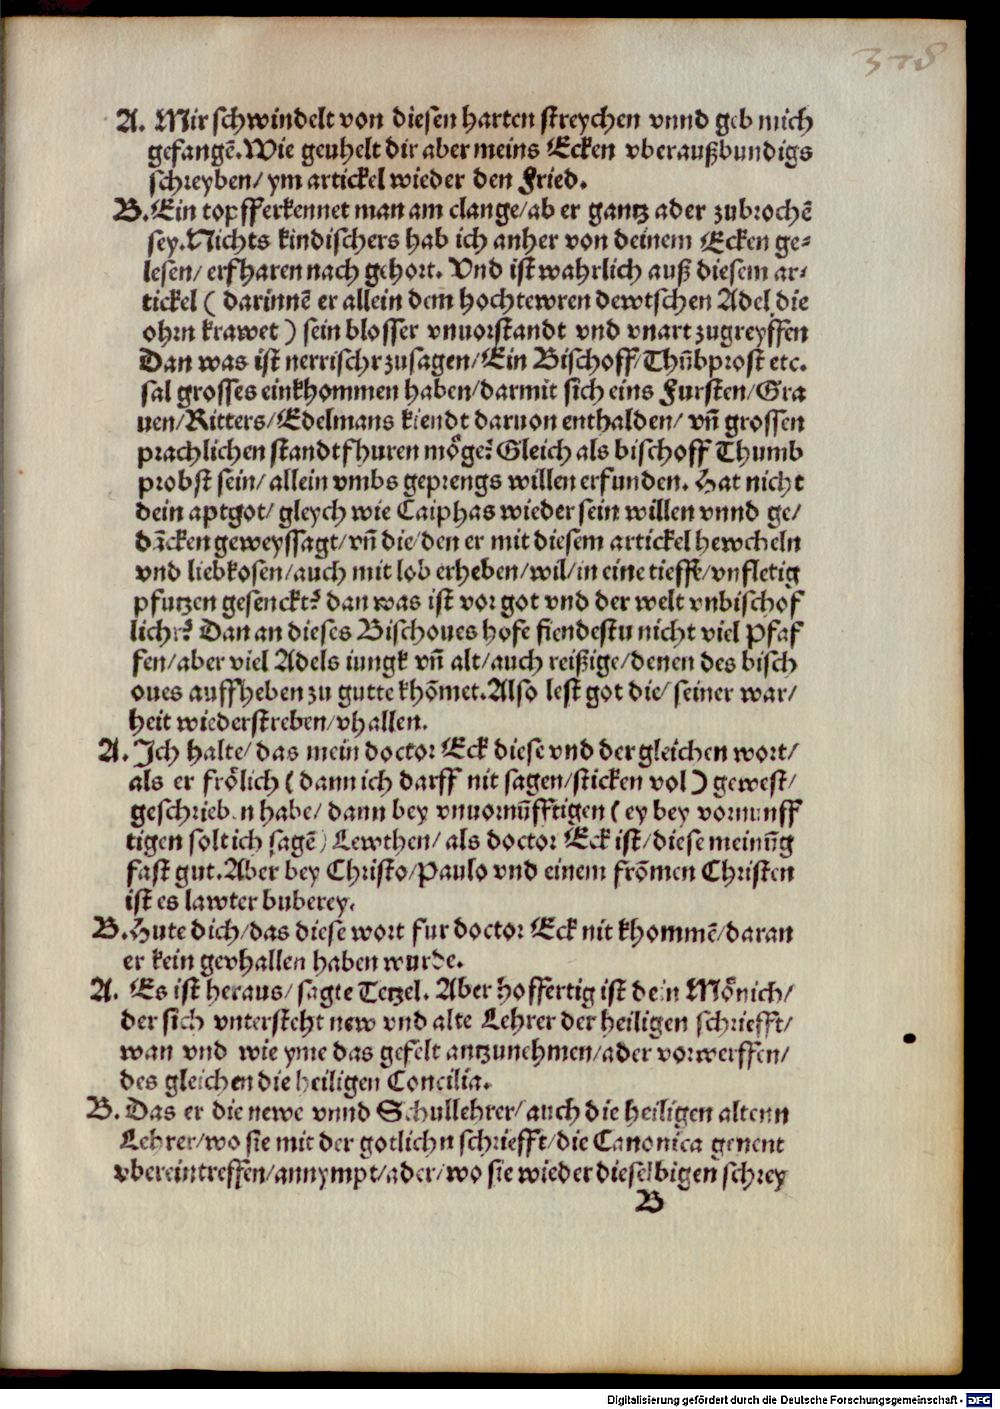 378
A. Mir schwindelt von diesen harten streychen vnnd geb mich
gefangē. Wie geuhelt dir aber meins Ecken vberaußbundigs
schreyben/ ym artickel wieder den Fried.
B. Ein topff erkennet man am clange/ ab er gantz ader zubrochē
sey. Nichts kindischers hab ich anher von deinem Ecken ge⸗
lesen/ erfharen nach gehort. Vnd ist wahrlich auß diesem ar⸗
tickel ( darinnē er allein dem hochtewren dewtschen Adel die
ohrn krawet ) sein blosser vnuorstandt vnd vnart zugreyffen
Dan was ist nerrischr zusagen/ Ein Bischoff/ Thūbprost etc.
sal grosses einkhommen haben/ darmit sich eins Fursten/ Gra
uen/ Ritters/ Edelmans kiendt daruon enthalden/ vn̄ grossen
prachlichen standt fhuren moͤge? Gleich als bischoff Thumb
probst sein/ allein vmbs geprengs willen erfunden. Hat nicht
dein aptgot/ gleych wie Caiphas wieder sein willen vnnd ge/
dācken geweyssagt/ vn̄ die/ den er mit diesem artickel hewcheln
vnd liebkosen/ auch mit lob erheben/ wil/ in eine tieffe/ vnfletig
pfutzen gesenckt? dan was ist vor got vnd der welt vnbischof
licher? Dan an dieses Bischoues hofe fiendestu nicht viel Pfaf
fen/ aber viel Adels iungk vn̄ alt/ auch reißige/ denen des bisch
oues auffheben zu gutte khōmet. Also lest got die/ seiner war/
heit wiederstreben/ vhallen.
A. Ich halte/ das mein doctor Eck diese vnd der gleichen wort/
als er froͤlich ( dann ich darff nit sagen/ sticken vol ) gewest/
geschrieben habe/ dann bey vnuornūfftigen ( ey bey vornunff
tigen solt ich sagē ) Lewthen/ als doctor Eck ist/ diese meinūg
fast gut. Aber bey Christo/ Paulo vnd einem frōmen Christen
ist es lawter buberey.
B. Hute dich/ das diese wort fur doctor Eck nit khommē/ daran
er kein gevhallen haben wurde.
A. Es ist heraus/ sagte Tetzel. Aber hoffertig ist dein Moͤnich/
der sich vntersteht new vnd alte Lehrer der heiligen schriefft/
wan vnd wie yme das gefelt antzunehmen/ ader vorwerffen/
des gleichen die heiligen Concilia.
B. Das er die newe vnnd Schullehrer/ auch die heiligen altenn
Lehrer/ wo sie mit der gotlichn schriefft/ die Canonica genent
vbereintreffen/ annympt/ ader/ wo sie wieder dieselbigen schrey
B
Digitalisierung gefördert durch die Deutsche Forschungsgemeinschaft - DFG